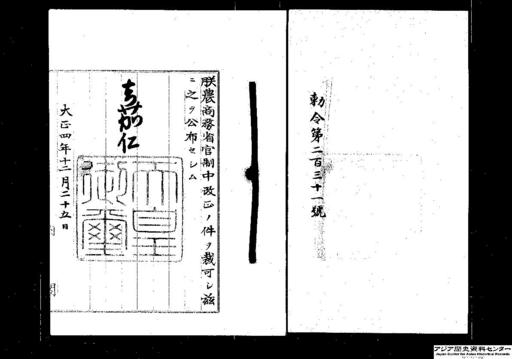 勅令第二百三十一號
朕農商務省官制中改正ノ件ヲ裁可シ茲
ニ之ヲ公布セシム
嘉仁
天皇御璽
大正四年十二月二十五日
アジア歴史資料センター
Japan Center for Asian Historical Records